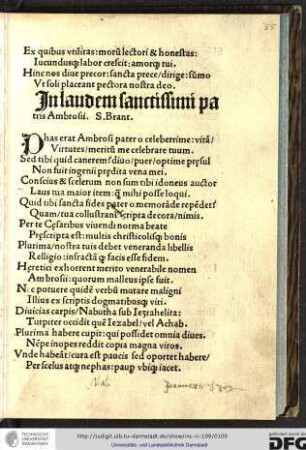 Ex quibus vtilitas: morū lectori & honestus:
Iucundusq; labor crescit: amorq; tui.
Hinc nos diue precor: sancta prece/ dirige: sūmo
Vt soli placeant pectora nostra deo.
In laudem sanctissimi pa
tris Ambrosii. S. Brant.
Phas erat Ambrosi pater o celeberrime: vitā/
Virtutes/ meritū me celebrare tuum.
Sed tibi quid canerem? diuo/ puer/ optime presul
Non fuit ingenii predita vena mei.
Conscius & scelerum non sum tibi idoneus auctor
Laus tua maior item: q̄ mihi posse loqui.
Quid tibi sancta fides pater o memorāde rependet?
Quam/ tua collustrant scripta decora/ nimis.
Per te Cęsaribus viuendi norma beate
Pręscripta est: multis christicolisq; bonis
Plurima/ nostra tuis debet veneranda libellis
Relligio: infractā q; facis esse fidem.
Hęretici exhorrent merito venerabile nomen
Ambrosii: quorum malleus ipse fuit.
Nec potuere quidē verbū mutare maligni
Illius ex scriptis dogmatibusq; viri.
Diuicias carpis/ Nabutha sub Iezrahelita:
Turpiter occidit quē Iezabel/ vel Achab.
Plurima habere cupit: qui possidet omnia diues.
Nēpe inopes reddit copia magna viros.
Vnde habeāt/ cura est paucis sed oportet habere/
Per scelus atq; nephas: paup vbiq; iacet.
TECHNISCHE
UNIVERSITÄT
DARMSTADT
http://tudigit.ulb.tu-darmstadt.de/show/inc-iv-199/0109
Universitäts- und Landesbibliothek Darmstadt
gefördert durch die
DFG